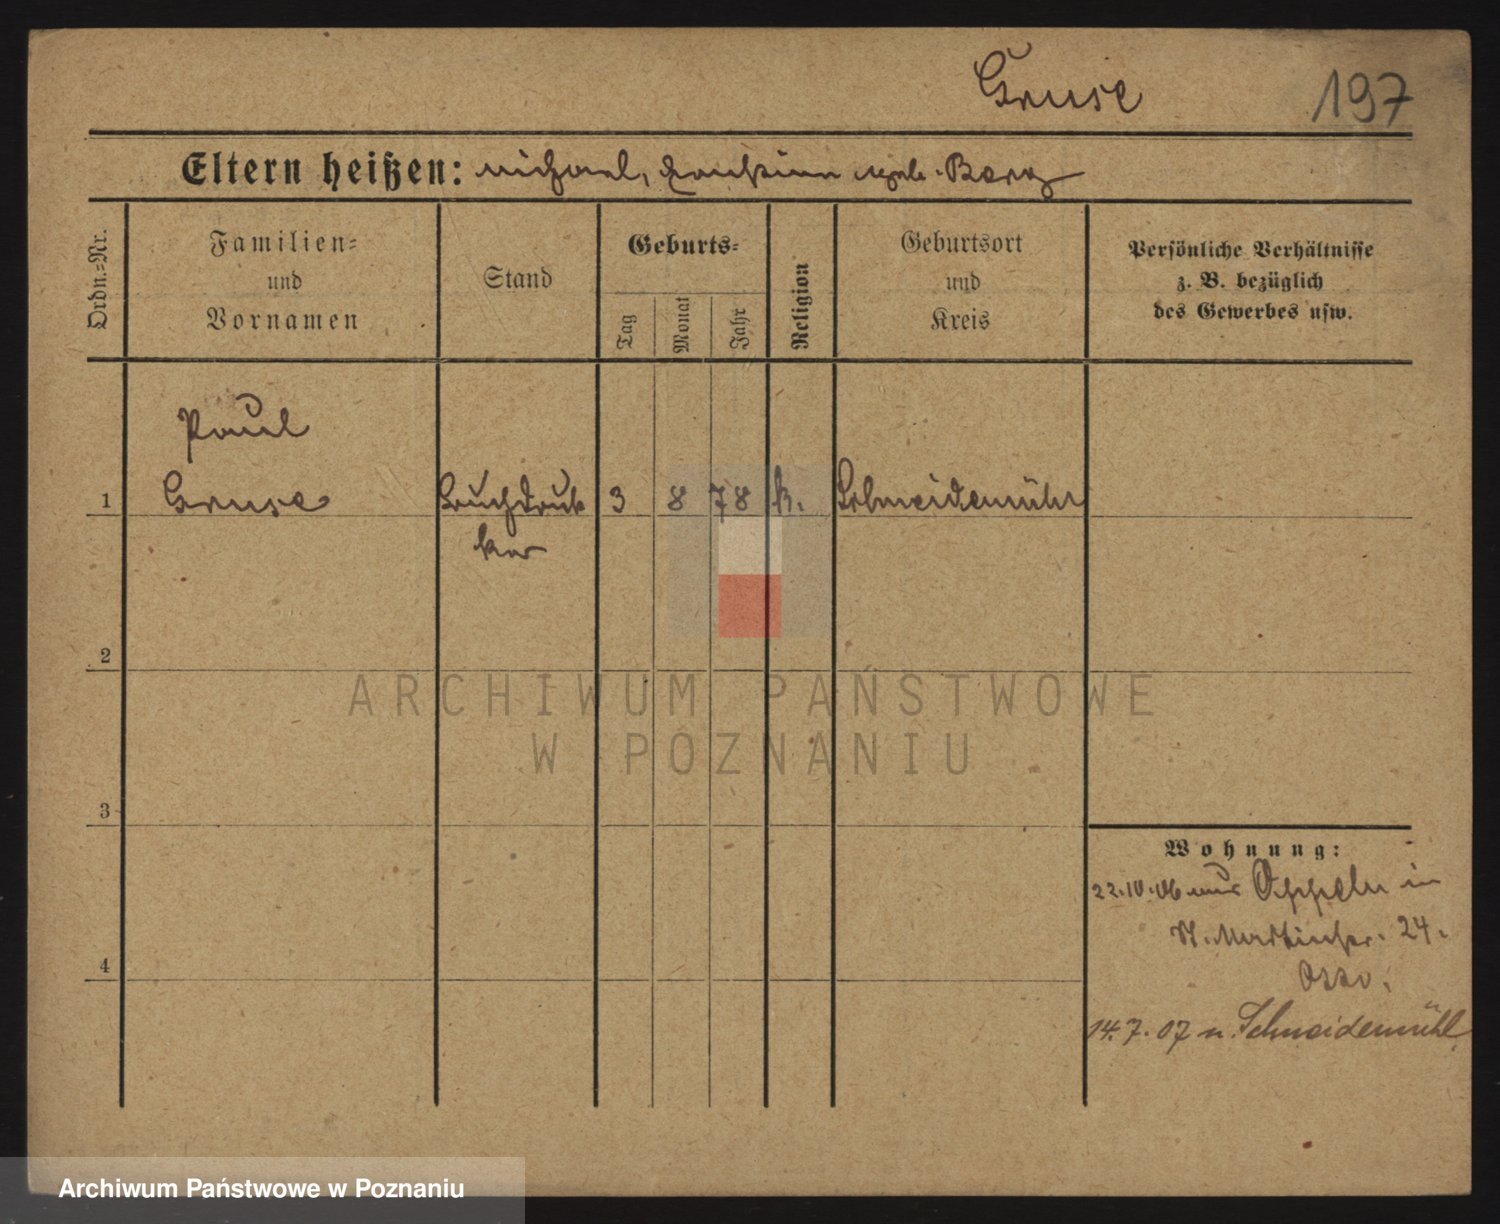 Gruse 197
Eltern heißen: Michael, geb. Berg
Ordn.=Nr.
Familien=
und
Vornamen
Stand
Geburts=
Tag
Monat
Jahr
Religion
Geburtsort
und
Kreis
Persönliche Verhältnisse
z. B. bezüglich
des Gewerbes usw.
Paul
1 Gruse Buchdruk 3 8 78 k. Schneidemühl
ker
2
ARCHIWUM PAŃSTWOWE
W POZNANIU
3
Wohnung:
22.10.06 aus Oppeln in
St. Martinstr. 24.
4
14.7.07 n. Schneidemühl
Archiwum Państwowe w Poznaniu